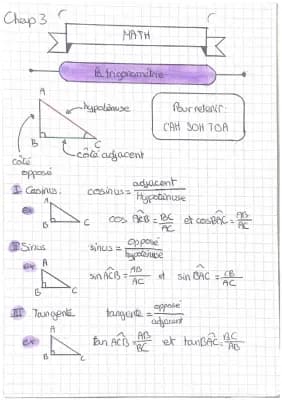 Chap 3
MATH
la trigonométrie
A
hypoténuse
Pour retenir:
CAH SOH TOA
B
C
côté adjacent
côté
opposé
I Cosinus.
cosinus = adjacent
Hypoténuse
ex
A
B
C
cos ACB̂ = BC/AC et cos BAĈ = AB/AC
II Sinus
sinus = opposé
hypoténuse
ex
A
B
C
sin ACB = AB/AC et sin BAC = CB/AC
III Tangente
tangente = opposé
adjacent
ex
A
B
C
tan ACB = AB/BC et tan BAC = BC/AB